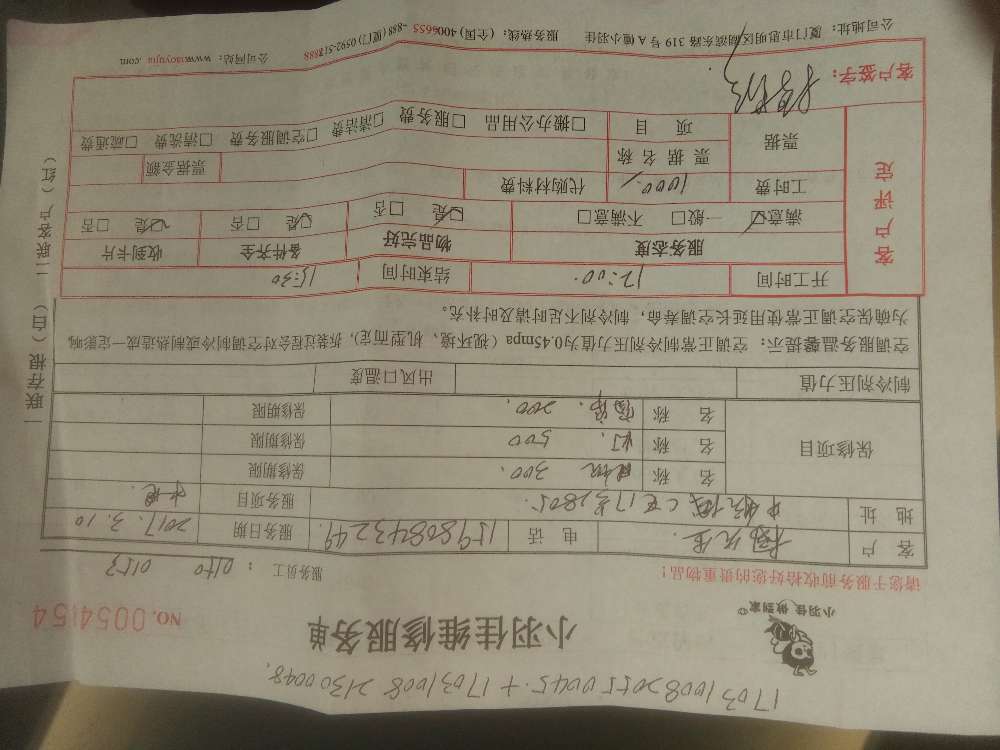 17031008205500045.+17031008213000048.
小羽佳 做到家
小羽佳维修服务单
NO.0054154
服务员工： 0150 0153
请您于服务前收拾好您的贵重物品！
客 户 先生 电 话 15980843249 服务日期 2017.3.10
地 址 C区17号2805. 服务项目
保修项目 名 称 300. 保修期限
名 称 灯. 500 保修期限
名 称 200. 保修期限
制冷剂压力值 出风口温度
空调服务温馨提示：空调正常制冷剂压力值为0.45mpa（视环境、机型而定），拆装过程会对空调制冷或制热造成一定影响，
为确保空调正常使用延长空调寿命，制冷剂不足时请及时补充。
客户评定
开工时间 12:00. 结束时间 15:30
服务态度 物品完好 备件齐全 收到卡片
满意□ 一般□ 不满意□ □是 □否 □是 □否 □是 □否
工时费 1000. 代购材料费
票据 票据名称 票据金额
项 目 □搬办公用品 □服务费 □清洁费 □空调服务费 □清洗费 □疏通费
客户签字：
公司地址：厦门市思明区湖滨东路 319 号 A 幢小羽佳 服务热线：（全国）4006655-888（厦门）0592-5178888 公司网站：www.xiaoyujia.com
一联存根（白） 二联客户（红）